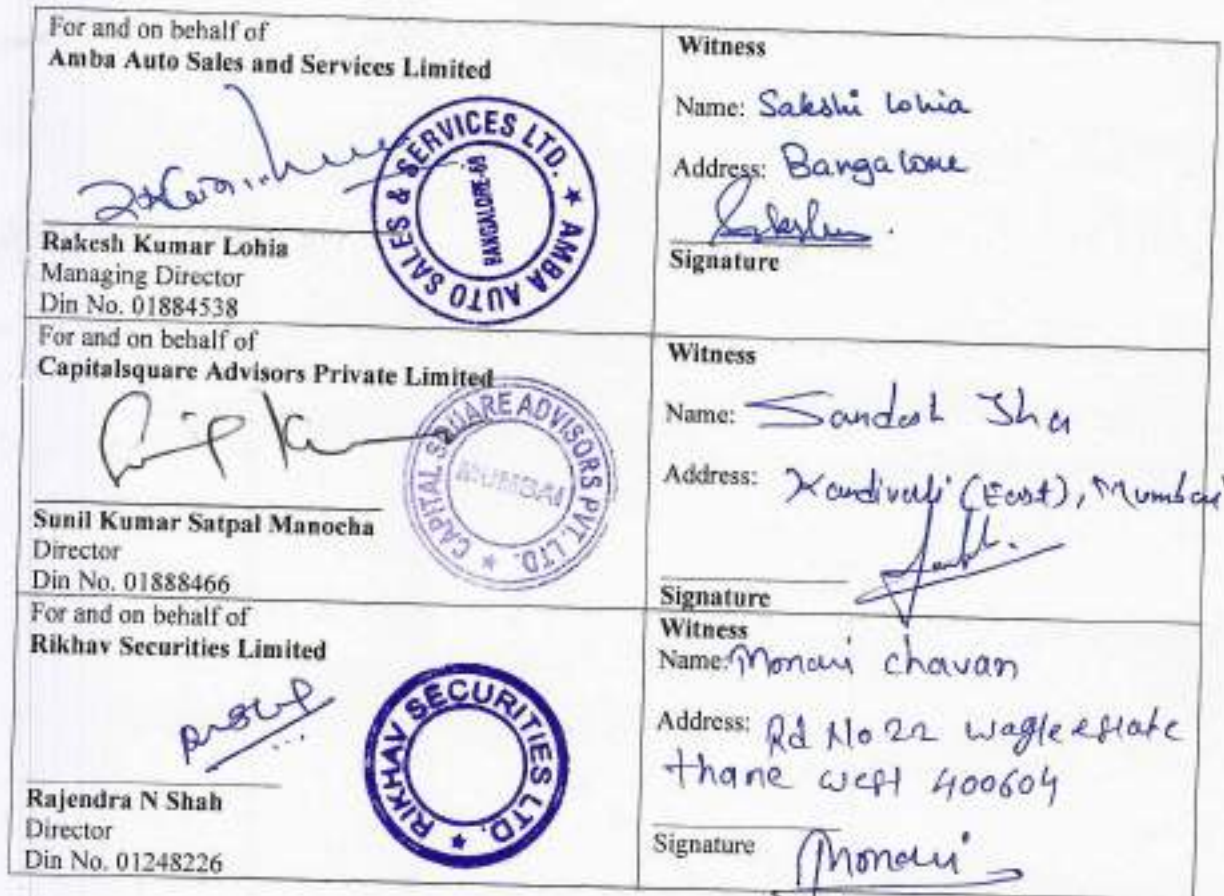 For and on behalf of
Amba Auto Sales and Services Limited
AMBA AUTO SALES & SERVICES LTD. ★
BANGALORE-68
Rakesh Kumar Lohia
Managing Director
Din No. 01884538
Witness
Name: Sakshi Lohia
Address: Bangalore
Signature
For and on behalf of
Capitalsquare Advisors Private Limited
CAPITAL SQUARE ADVISORS PVT. LTD. ★
MUMBAI
Sunil Kumar Satpal Manocha
Director
Din No. 01888466
Witness
Name: Sandesh Jha
Address: Kandivali (East), Mumbai
Signature
For and on behalf of
Rikhav Securities Limited
RIKHAV SECURITIES LTD. ★
Rajendra N Shah
Director
Din No. 01248226
Witness
Name: chavan
Address: Rd No 22 wagle estate
thane west 400604
Signature